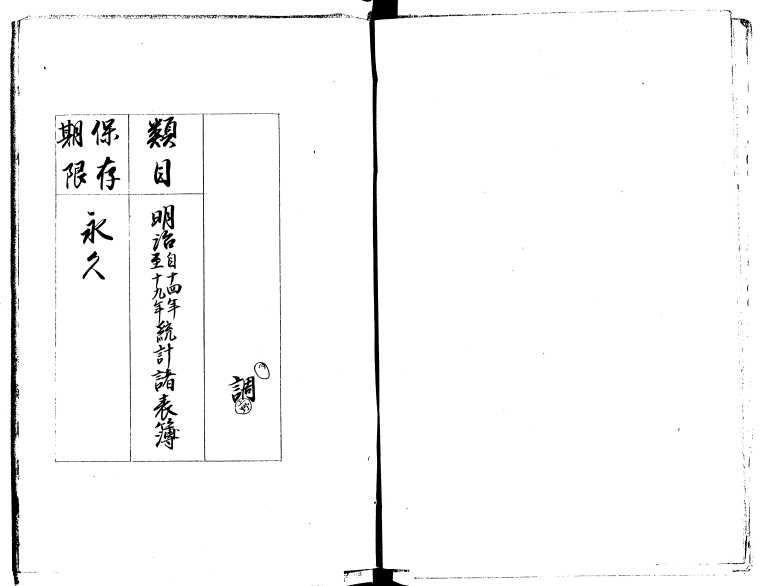 調
類目
明治自十四年至十九年統計諸表簿
保存期限
永久